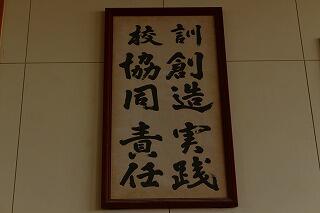 校訓
創造 実践
協同 責任